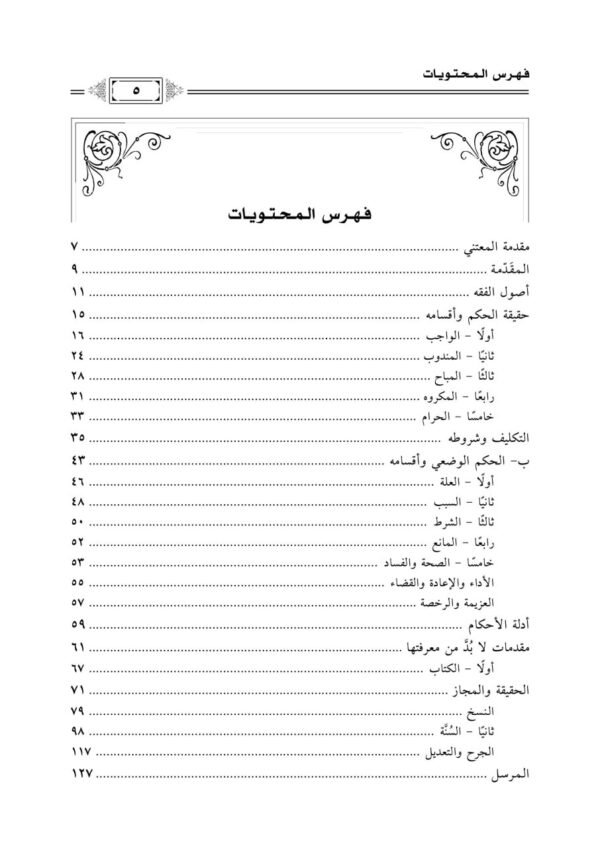 فهرس المحتويات
٥
فهرس المحتويات
مقدمة المعتني ........ ٧
المقَدّمة ........ ٩
أصول الفقه ........ ١١
حقيقة الحكم وأقسامه ........ ١٥
أولًا - الواجب ........ ١٦
ثانيًا - المندوب ........ ٢٤
ثالثًا - المباح ........ ٢٨
رابعًا - المكروه ........ ٣١
خامسًا - الحرام ........ ٣٣
التكليف وشروطه ........ ٣٥
ب- الحكم الوضعي وأقسامه ........ ٤٣
أولًا - العلة ........ ٤٦
ثانيًا - السبب ........ ٤٨
ثالثًا - الشرط ........ ٥٠
رابعًا - المانع ........ ٥٢
خامسًا - الصحة والفساد ........ ٥٣
الأداء والإعادة والقضاء ........ ٥٥
العزيمة والرخصة ........ ٥٧
أدلة الأحكام ........ ٥٩
مقدمات لا بُدَّ من معرفتها ........ ٦١
أولًا - الكتاب ........ ٦٧
الحقيقة والمجاز ........ ٧١
النسخ ........ ٧٩
ثانيًا - السُنَّة ........ ٩٨
الجرح والتعديل ........ ١١٧
المرسل ........ ١٢٧